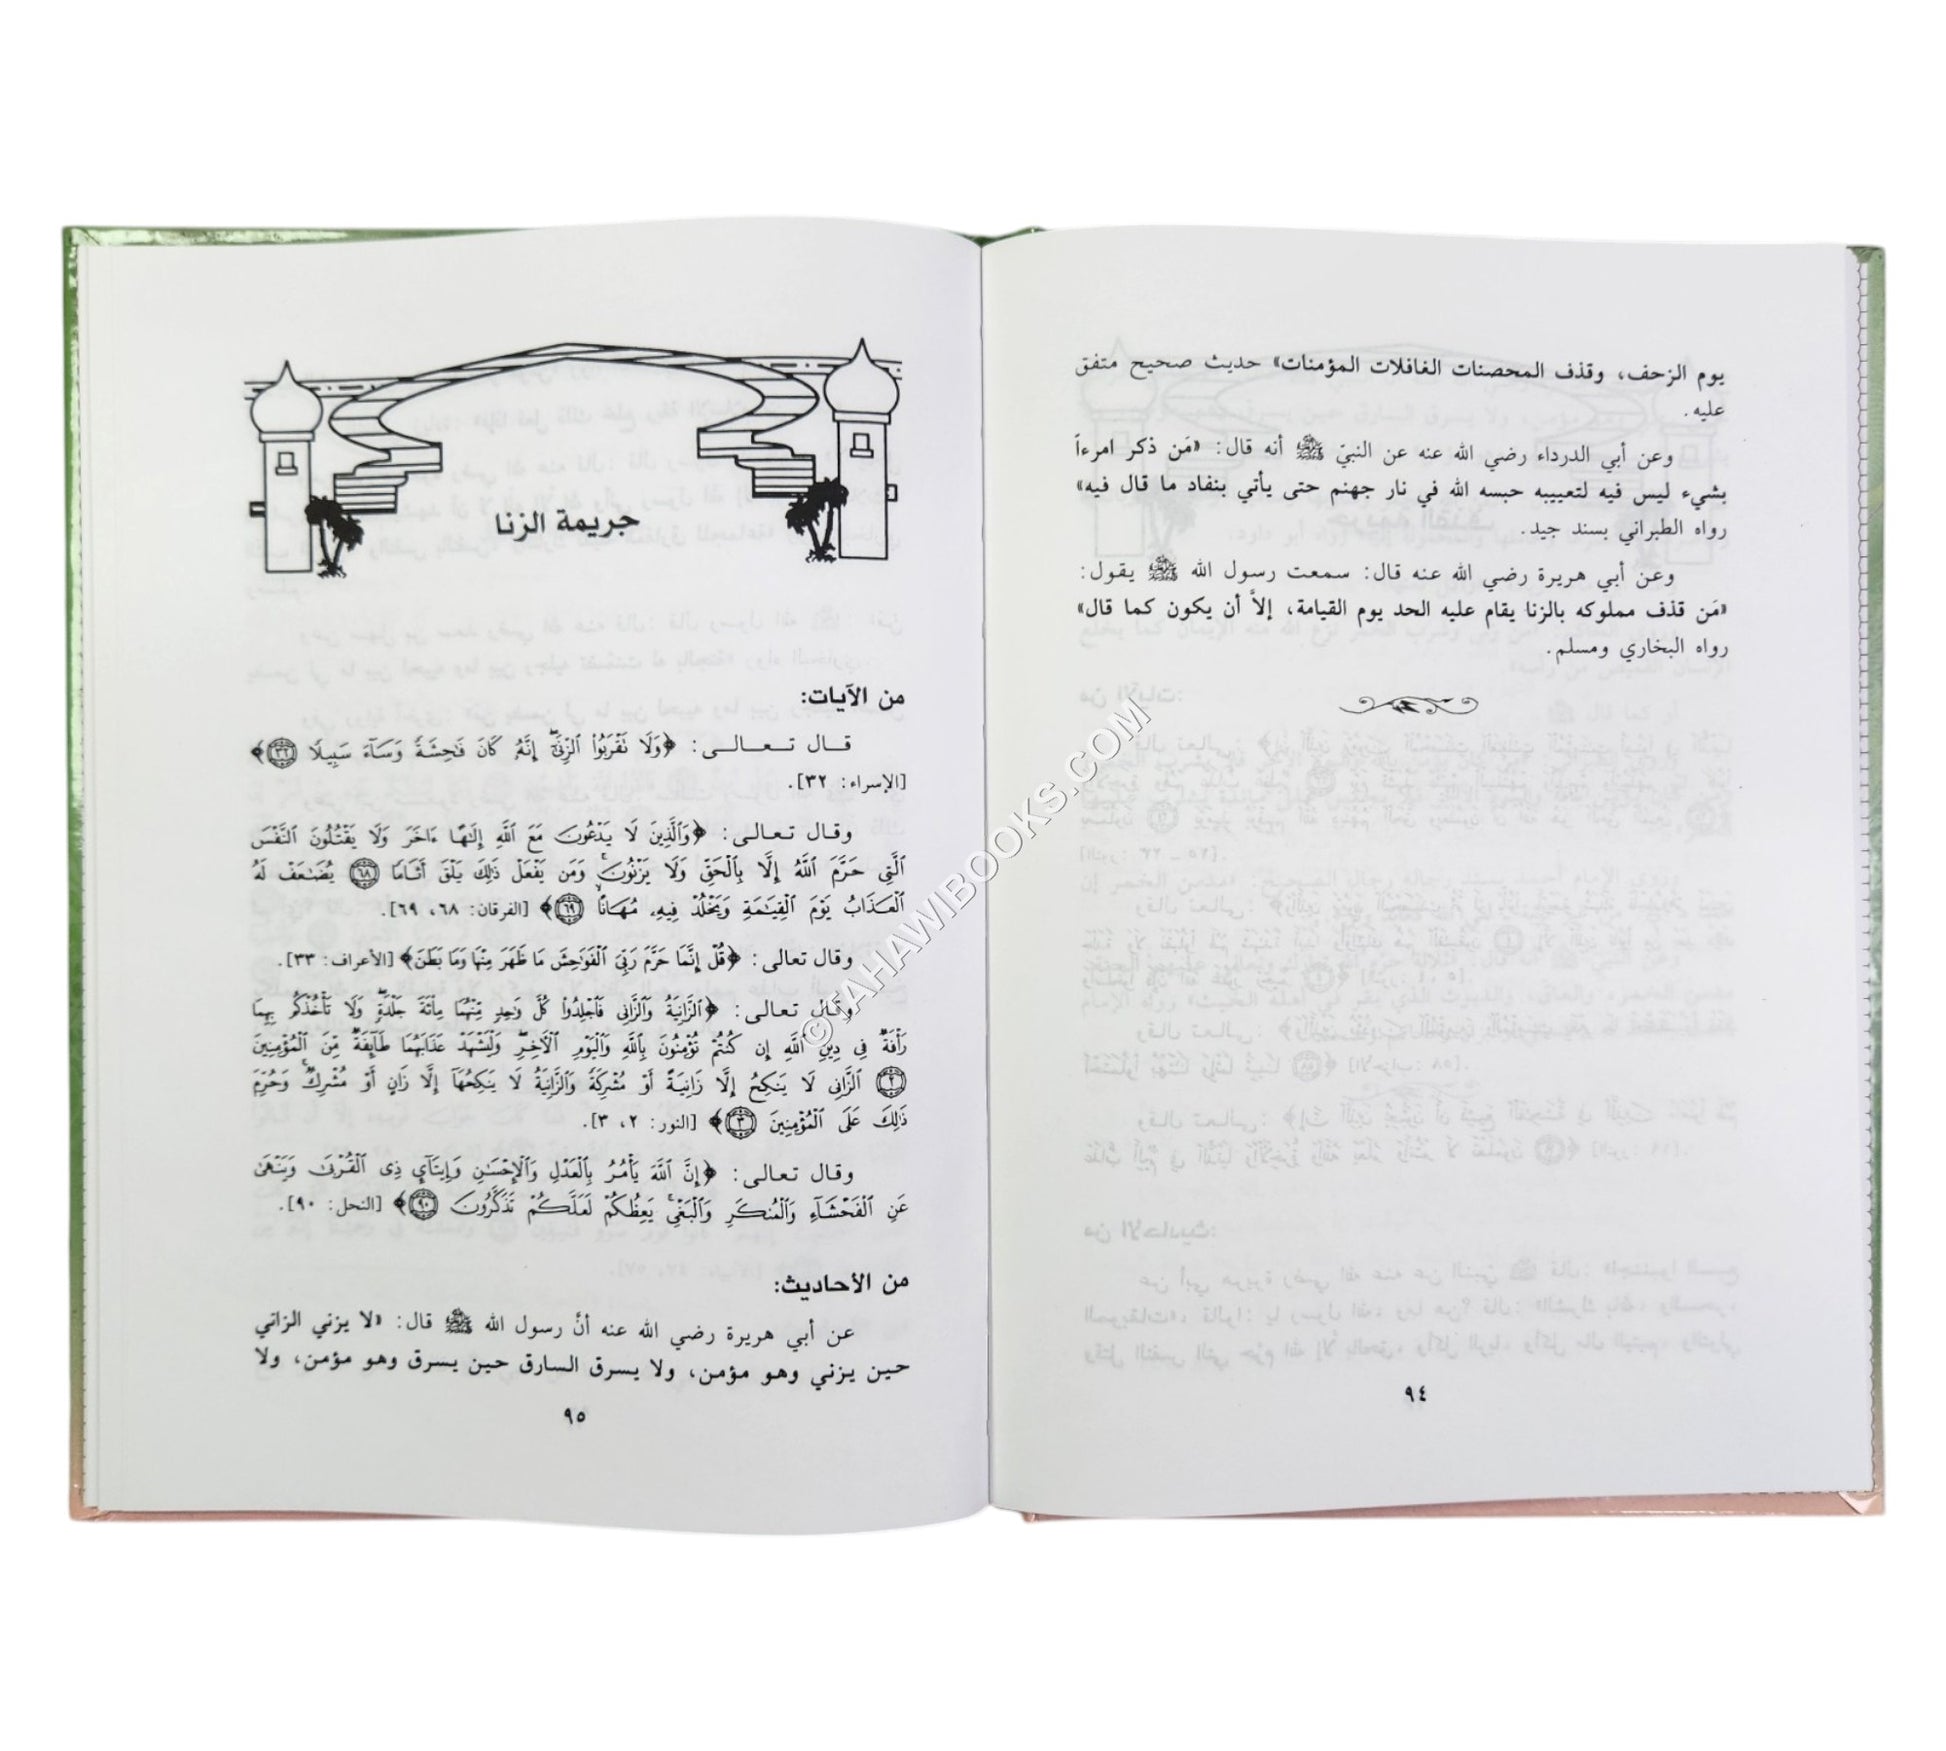 يوم الزحف، وقذف المحصنات الغافلات المؤمنات» حديث صحيح متفق
عليه.
وعن أبي الدرداء رضي الله عنه عن النبيّ ﷺ أنه قال: «مَن ذكر امرءاً
بشيء ليس فيه لتعييبه حبسه الله في نار جهنم حتى يأتي بنفاد ما قال فيه»
رواه الطبراني بسند جيد.
وعن أبي هريرة رضي الله عنه قال: سمعت رسول الله ﷺ يقول:
«مَن قذف مملوكه بالزنا يقام عليه الحد يوم القيامة، إلاَّ أن يكون كما قال»
رواه البخاري ومسلم.
٩٤
جريمة الزنا
من الآيات:
قال تعالى: ﴿وَلَا نَقْرَبُوا۟ ٱلزِّنَىٰٓ إِنَّهُۥ كَانَ فَـٰحِشَةً وَسَآءَ سَبِيلًا ٣٢﴾
[الإسراء: ٣٢].
وقال تعالى: ﴿وَٱلَّذِينَ لَا يَدْعُونَ مَعَ ٱللَّهِ إِلَـٰهًا ءَاخَرَ وَلَا يَقْتُلُونَ ٱلنَّفْسَ
ٱلَّتِى حَرَّمَ ٱللَّهُ إِلَّا بِٱلْحَقِّ وَلَا يَزْنُونَ ۚ وَمَن يَفْعَلْ ذَٰلِكَ يَلْقَ أَثَامًا ٦٨ يُضَـٰعَفْ لَهُ
ٱلْعَذَابُ يَوْمَ ٱلْقِيَـٰمَةِ وَيَخْلُدْ فِيهِۦ مُهَانًا ٦٩﴾ [الفرقان: ٦٨، ٦٩].
وقال تعالى: ﴿قُلْ إِنَّمَا حَرَّمَ رَبِّىَ ٱلْفَوَٰحِشَ مَا ظَهَرَ مِنْهَا وَمَا بَطَنَ﴾ [الأعراف: ٣٣].
وقال تعالى: ﴿ٱلزَّانِيَةُ وَٱلزَّانِى فَٱجْلِدُوا۟ كُلَّ وَٰحِدٍ مِّنْهُمَا مِا۟ئَةَ جَلْدَةٍ ۖ وَلَا تَأْخُذْكُم بِهِمَا
رَأْفَةٌ فِى دِينِ ٱللَّهِ إِن كُنتُمْ تُؤْمِنُونَ بِٱللَّهِ وَٱلْيَوْمِ ٱلْـَٔاخِرِ ۖ وَلْيَشْهَدْ عَذَابَهُمَا طَآئِفَةٌ مِّنَ ٱلْمُؤْمِنِينَ
٢ ٱلزَّانِى لَا يَنكِحُ إِلَّا زَانِيَةً أَوْ مُشْرِكَةً وَٱلزَّانِيَةُ لَا يَنكِحُهَآ إِلَّا زَانٍ أَوْ مُشْرِكٌ ۚ وَحُرِّمَ
ذَٰلِكَ عَلَى ٱلْمُؤْمِنِينَ ٣﴾ [النور: ٢، ٣].
وقال تعالى: ﴿إِنَّ ٱللَّهَ يَأْمُرُ بِٱلْعَدْلِ وَٱلْإِحْسَـٰنِ وَإِيتَآىِٕ ذِى ٱلْقُرْبَىٰ وَيَنْهَىٰ
عَنِ ٱلْفَحْشَآءِ وَٱلْمُنكَرِ وَٱلْبَغْىِ ۚ يَعِظُكُمْ لَعَلَّكُمْ تَذَكَّرُونَ ٩٠﴾ [النحل: ٩٠].
من الأحاديث:
عن أبي هريرة رضي الله عنه أنَّ رسول الله ﷺ قال: «لا يزني الزاني
حين يزني وهو مؤمن، ولا يسرق السارق حين يسرق وهو مؤمن، ولا
٩٥
© TAHAWIBOOKS.COM